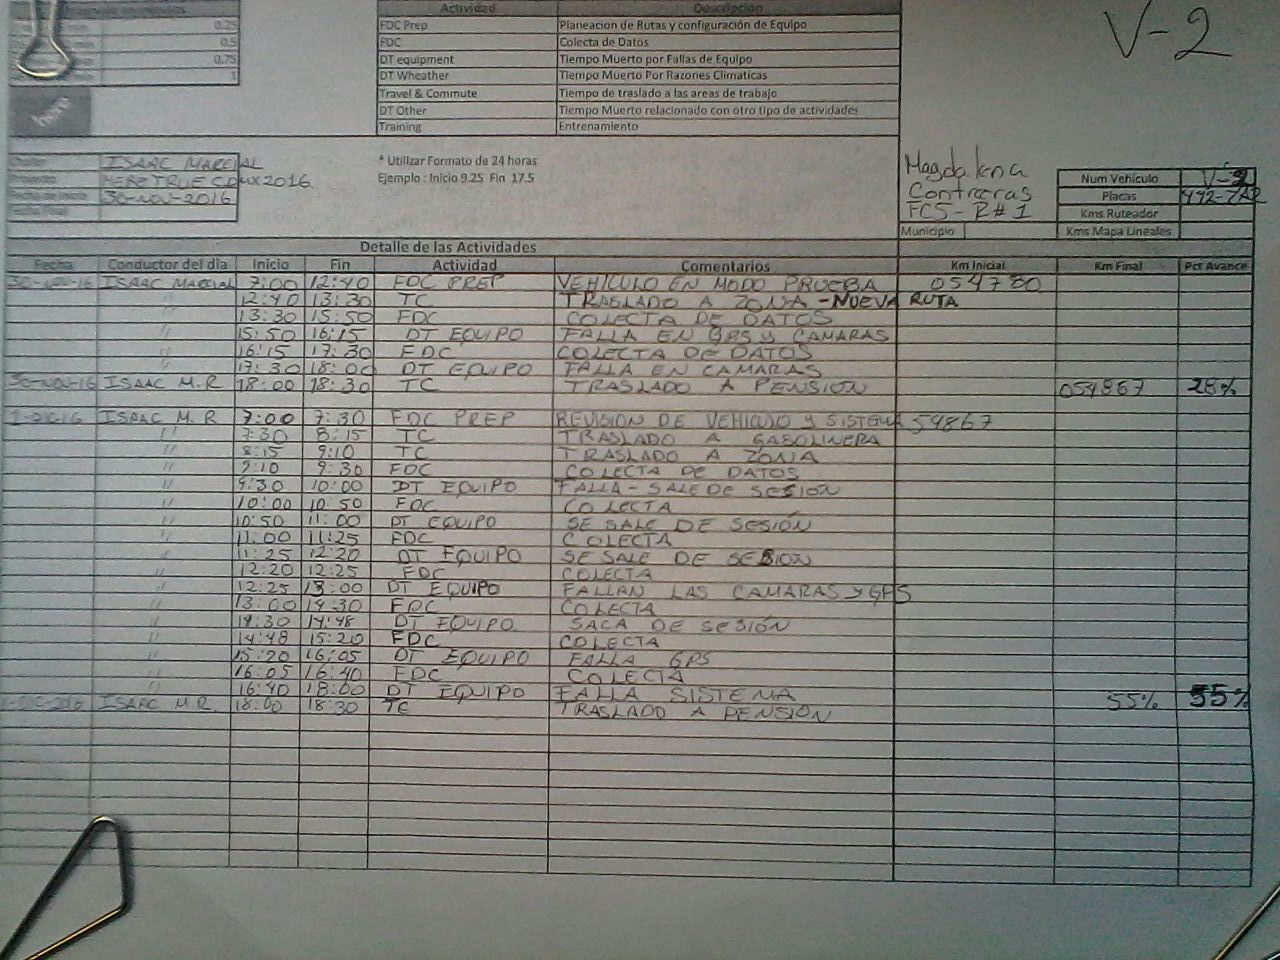 0.25
0.5
0.75
1
hora
Actividad Descripcion
FDC Prep Planeacion de Rutas y configuración de Equipo
FDC Colecta de Datos
DT equipment Tiempo Muerto por Fallas de Equipo
DT Wheather Tiempo Muerto Por Razones Climaticas
Travel & Commute Tiempo de traslado a las areas de trabajo
DT Other Tiempo Muerto relacionado con otro tipo de actividades
Training Entrenamiento
V-2
ISAAC MARCIAL
CDMX2016
30-NOV-2016
* Utilizar Formato de 24 horas
Ejemplo : Inicio 9.25 Fin 17.5
Magdalena
Contreras
FCS - R# 1
Municipio
Num Vehículo V-2
Placas
Kms Ruteador
Kms Mapa Lineales
Detalle de las Actividades
Fecha Conductor del dia Inicio Fin Actividad Comentarios Km Inicial Km Final Pct Avance
30-NOV-16 ISAAC MARCIAL 7:00 12:40 FDC PREP VEHÍCULO EN MODO PRUEBA 054780
" 12:40 13:30 TC TRASLADO A ZONA - NUEVA RUTA
" 13:30 15:50 FDC COLECTA DE DATOS
" 15:50 16:15 DT EQUIPO FALLA EN GPS y CAMARAS
" 16:15 17:30 FDC COLECTA DE DATOS
" 17:30 18:00 DT EQUIPO FALLA EN CAMARAS
30-NOV-16 ISAAC M.R 18:00 18:30 TC TRASLADO A PENSION 054867 28%
1-DIC-16 ISAAC M.R 7:00 7:30 FDC PREP REVISION DE VEHICULO y SISTEMA 54867
" 7:30 8:15 TC TRASLADO A GASOLINERA
" 8:15 9:10 TC TRASLADO A ZONA
" 9:10 9:30 FDC COLECTA DE DATOS
" 9:30 10:00 DT EQUIPO FALLA - SALE DE SESIÓN
" 10:00 10:50 FDC COLECTA
" 10:50 11:00 DT EQUIPO SE SALE DE SESIÓN
" 11:00 11:25 FDC COLECTA
" 11:25 12:20 DT EQUIPO SE SALE DE SESION
" 12:20 12:25 FDC COLECTA
" 12:25 13:00 DT EQUIPO FALLAN LAS CAMARAS y GPS
" 13:00 14:30 FDC COLECTA
" 14:30 14:48 DT EQUIPO SACA DE SESIÓN
" 14:48 15:20 FDC COLECTA
" 15:20 16:05 DT EQUIPO FALLA GPS
" 16:05 16:40 FDC COLECTA
" 16:40 18:00 DT EQUIPO FALLA SISTEMA 55% 55%
ISAAC M.R. 18:00 18:30 TC TRASLADO A PENSIÓN